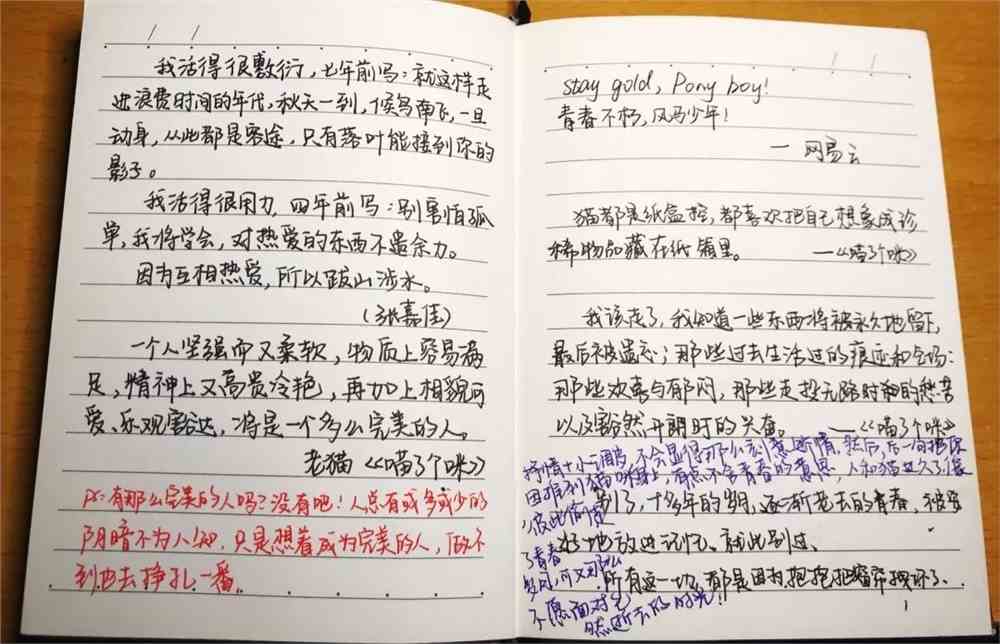 我活得很敷衍，七年前吗：就这样走
进浪费时间的年代，秋天一到，候鸟南飞，一旦
动身，从此都是客途，只有落叶能接到你的
影子。
我活得很用力，四年前吗：别害怕孤
单，我将学会，对热爱的东西不遗余力。
因为互相热爱，所以跋山涉水。
（张嘉佳）
一个人坚强而又柔软，物质上容易满
足，精神上又高贵冷艳，再加上相貌可
爱、乐观豁达，将是一个多么完美的人。
老猫《喵了个咪》
PS：有那么完美的人吗？没有吧！人总有或多或少的
阴暗不为人知，只是想着成为完美的人，做不
到也去挣扎一番。
stay gold, Pony boy!
青春不朽，风马少年！
— 网易云
猫都是纸盒控，都喜欢把自己想象成珍
稀物品藏在纸箱里。 —《喵了个咪》
我该走了，我知道一些东西将被永久地留下，
最后被遗忘；那些过去生活过的痕迹和会场：
那些欢喜与郁闷，那些走投无路时的愁苦
以及豁然开朗时的兴奋。 —《喵了个咪》
抒情+小调皮，不会显得那么刻意煽情，然后，后一句把原
因推到猫咪身上，有点不舍青春的意思，人和猫
彼此
别了，十多年的岁月，逐渐老去的青春，被安
好地放进记忆。就此别过、
了青春
所有这一切，都是因为抱抱把窗帘拽坏了。
不愿面对它
然逝去的时光！